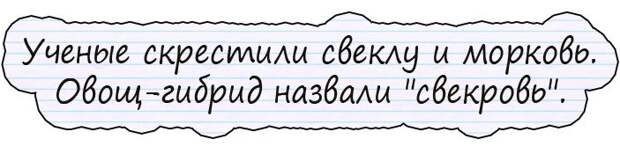 Ученые скрестили свеклу и морковь.
Овощ-гибрид назвали "свекровь".